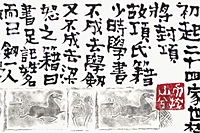 初起二十四家世
將封項
故項氏籍
少時學書
不成去學劍
又不成
怒之籍曰
書足記名
而已劍人